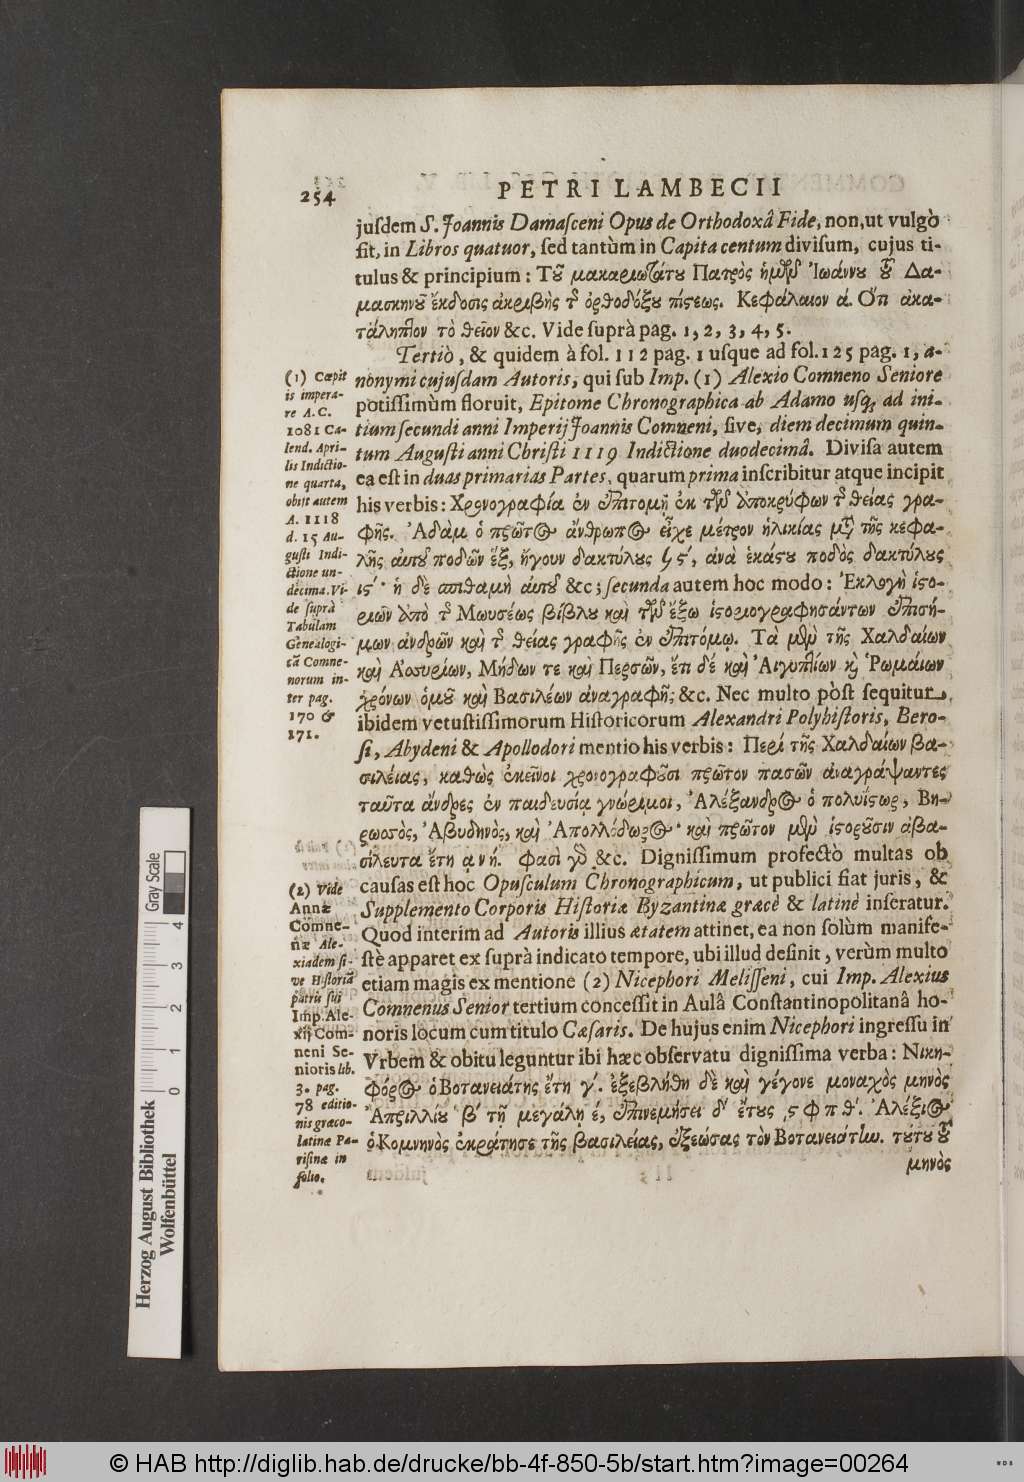 254
PETRI LAMBECII
jusdem S. Joannis Damasceni Opus de Orthodoxâ Fide, non, ut vulgò
fit, in Libros quatuor, sed tantùm in Capita centum divisum, cujus ti-
tulus & principium: Τοῦ μακαριωτάτου Πατρὸς ἡμῶν Ἰωάννου τοῦ Δα-
μασκηνοῦ ἔκδοσις ἀκριβὴς τῆς ὀρθοδόξου πίστεως. Κεφάλαιον ά. Ὅτι ἀκα-
τάληπτον τὸ θεῖον &c. Vide suprà pag. 1, 2, 3, 4, 5.
Tertiò, & quidem à fol. 112 pag. 1 usque ad fol. 125 pag. 1, a-
nonymi cujusdam Autoris, qui sub Imp. (1) Alexio Comneno Seniore
potissimùm floruit, Epitome Chronographica ab Adamo usq; ad ini-
tium secundi anni Imperij Joannis Comneni, sive, diem decimum quin-
tum Augusti anni Christi 1119 Indictione duodecimâ. Divisa autem
ea est in duas primarias Partes, quarum prima inscribitur atque incipit
his verbis: Χρονογραφία ἐν ἐπιτομῇ ἐκ τῶν ἀποκρύφων τῆς θείας γρα-
φῆς. Ἀδὰμ ὁ πρῶτος ἄνθρωπος εἶχε μέτρον ἡλικίας μετὰ τῆς κεφα-
λῆς αὐτοῦ ποδῶν ἓξ, ἤγουν δακτύλους ϟς΄, ἀνὰ ἑκάστου ποδὸς δακτύλους
ις΄· ἡ δὲ σπιθαμὴ αὐτοῦ &c; secunda autem hoc modo: Ἐκλογὴ ἱστο-
ριῶν ἀπὸ τῆς Μωυσέως βίβλου καὶ τῶν ἔξω ἱστοριογραφησάντων ἐπισή-
μων ἀνδρῶν καὶ τῆς θείας γραφῆς ἐν ἐπιτόμῳ. Τὰ μὲν τῆς Χαλδαίων
καὶ Ἀσσυρίων, Μήδων τε καὶ Περσῶν, ἔτι δέ καὶ Αἰγυπτίων καὶ Ῥωμαίων
χρόνων ὁμοῦ καὶ Βασιλέων ἀναγραφῆς &c. Nec multo pòst sequitur
ibidem vetustissimorum Historicorum Alexandri Polyhistoris, Bero-
si, Abydeni & Apollodori mentio his verbis: Περὶ τῆς Χαλδαίων βα-
σιλείας, καθὼς ἐκεῖνοι χρονογραφοῦσι πρῶτον πασῶν ἀναγράψαντες
ταῦτα ἄνδρες ἐν παιδευσίᾳ γνώριμοι, Ἀλέξανδρος ὁ πολυΐστωρ, Βη-
ρωσσὸς, Ἀβυδηνὸς, καὶ Ἀπολλόδωρος· καὶ πρῶτον μὲν ἱστοροῦσιν ἀβα-
σίλευτα ἔτη ͵ανή. φασὶ γὰρ &c. Dignissimum profectò multas ob
causas est hoc Opusculum Chronographicum, ut publici fiat juris, &
Supplemento Corporis Historiæ Byzantinæ græcè & latinè inseratur.
Quod interim ad Autoris illius ætatem attinet, ea non solùm manife-
stè apparet ex suprà indicato tempore, ubi illud desinit, verùm multo
etiam magis ex mentione (2) Nicephori Melisseni, cui Imp. Alexius
Comnenus Senior tertium concessit in Aulâ Constantinopolitanâ ho-
noris locum cum titulo Cæsaris. De hujus enim Nicephori ingressu in
Vrbem & obitu leguntur ibi hæc observatu dignissima verba: Νικη-
φόρος ὁ Βοτανειάτης ἔτη γ΄. ἐξεβλήθη δὲ καὶ γέγονε μοναχὸς μηνὸς
Ἀπριλλίου β΄ τῇ μεγάλῃ έ, ἐπινεμήσει δ΄ ἔτους ͵ςφπθ΄. Ἀλέξιος
ὁ Κομνηνὸς ἐκράτησε τῆς βασιλείας, ἐξεώσας τὸν Βοτανειάτην. τούτου τοῦ
μηνὸς
(1) Cœpit
is impera-
re A.C.
1081 Ca-
lend. Apri-
lis Indictio-
ne quarta,
obiit autem
A. 1118
d. 15 Au-
gusti Indi-
ctione un-
decima. Vi-
de suprà
Tabulam
Genealogi-
cã Comne-
norum in-
ter pag.
170 &
171.
(2) Vide
Annæ
Comne-
næ Ale-
xiadem si-
ve Historiã
patris sui
Imp. Ale-
xij Com-
neni Se-
nioris lib.
3. pag.
78 editio-
nis græco-
latinæ Pa-
risinæ in
folio.
Gray Scale
0 1 2 3 4
Herzog August Bibliothek
Wolfenbüttel
© HAB http://diglib.hab.de/drucke/bb-4f-850-5b/start.htm?image=00264